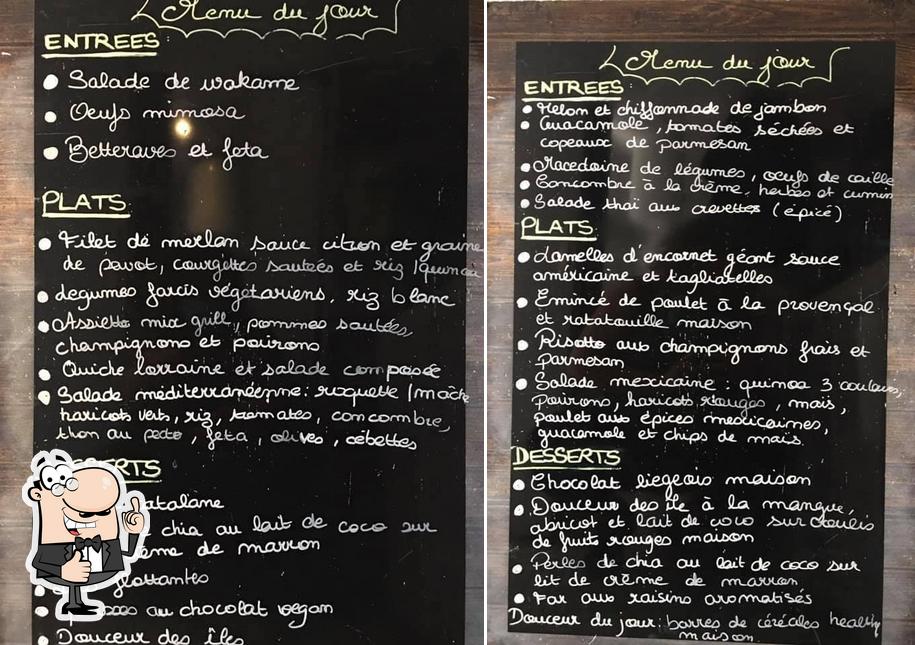 Menu du jour
ENTREES :
• Salade de wakame
• Oeufs mimosa
• Betteraves et feta
PLATS :
• Filet de merlan sauce citron et graine
de pavot, courgettes sautées et riz / quinoa
• légumes farcis végétariens, riz blanc
• Assiette mix grill, pommes sautées,
champignons et poivrons
• Quiche lorraine et salade composée
• Salade méditerranéenne : roquette / mâche
haricots verts, riz, tomates, concombre,
thon au pesto, feta, olives, cébettes
DESSERTS
catalane
chia au lait de coco sur
crème de marron
flottantes
au chocolat vegan
• Douceur des îles
Menu du jour
ENTREES :
• Melon et chiffonnade de jambon
• Guacamole, tomates séchées et
copeaux de parmesan
• Macedoine de légumes, oeufs de caille
• Concombre à la crème, herbes et cumin
• Salade thaï aux crevettes (épicé)
PLATS :
• Lamelles d'encornet géant sauce
américaine et tagliatelles
• Emincé de poulet à la provençal
et ratatouille maison
• Risotto aux champignons frais et
parmesan
• Salade mexicaine : quinoa 3 couleurs,
poivrons, haricots rouges, maïs,
poulet aux épices mexicaines,
guacamole et chips de maïs.
DESSERTS
• Chocolat liegeois maison
• Douceur des île à la mangue,
abricot et lait de coco sur coulis
de fruits rouges maison
• Perles de chia au lait de coco sur
lit de crème de marron
• Far aux raisins aromatisés
Douceur du jour : barres de céréales healthy
maison